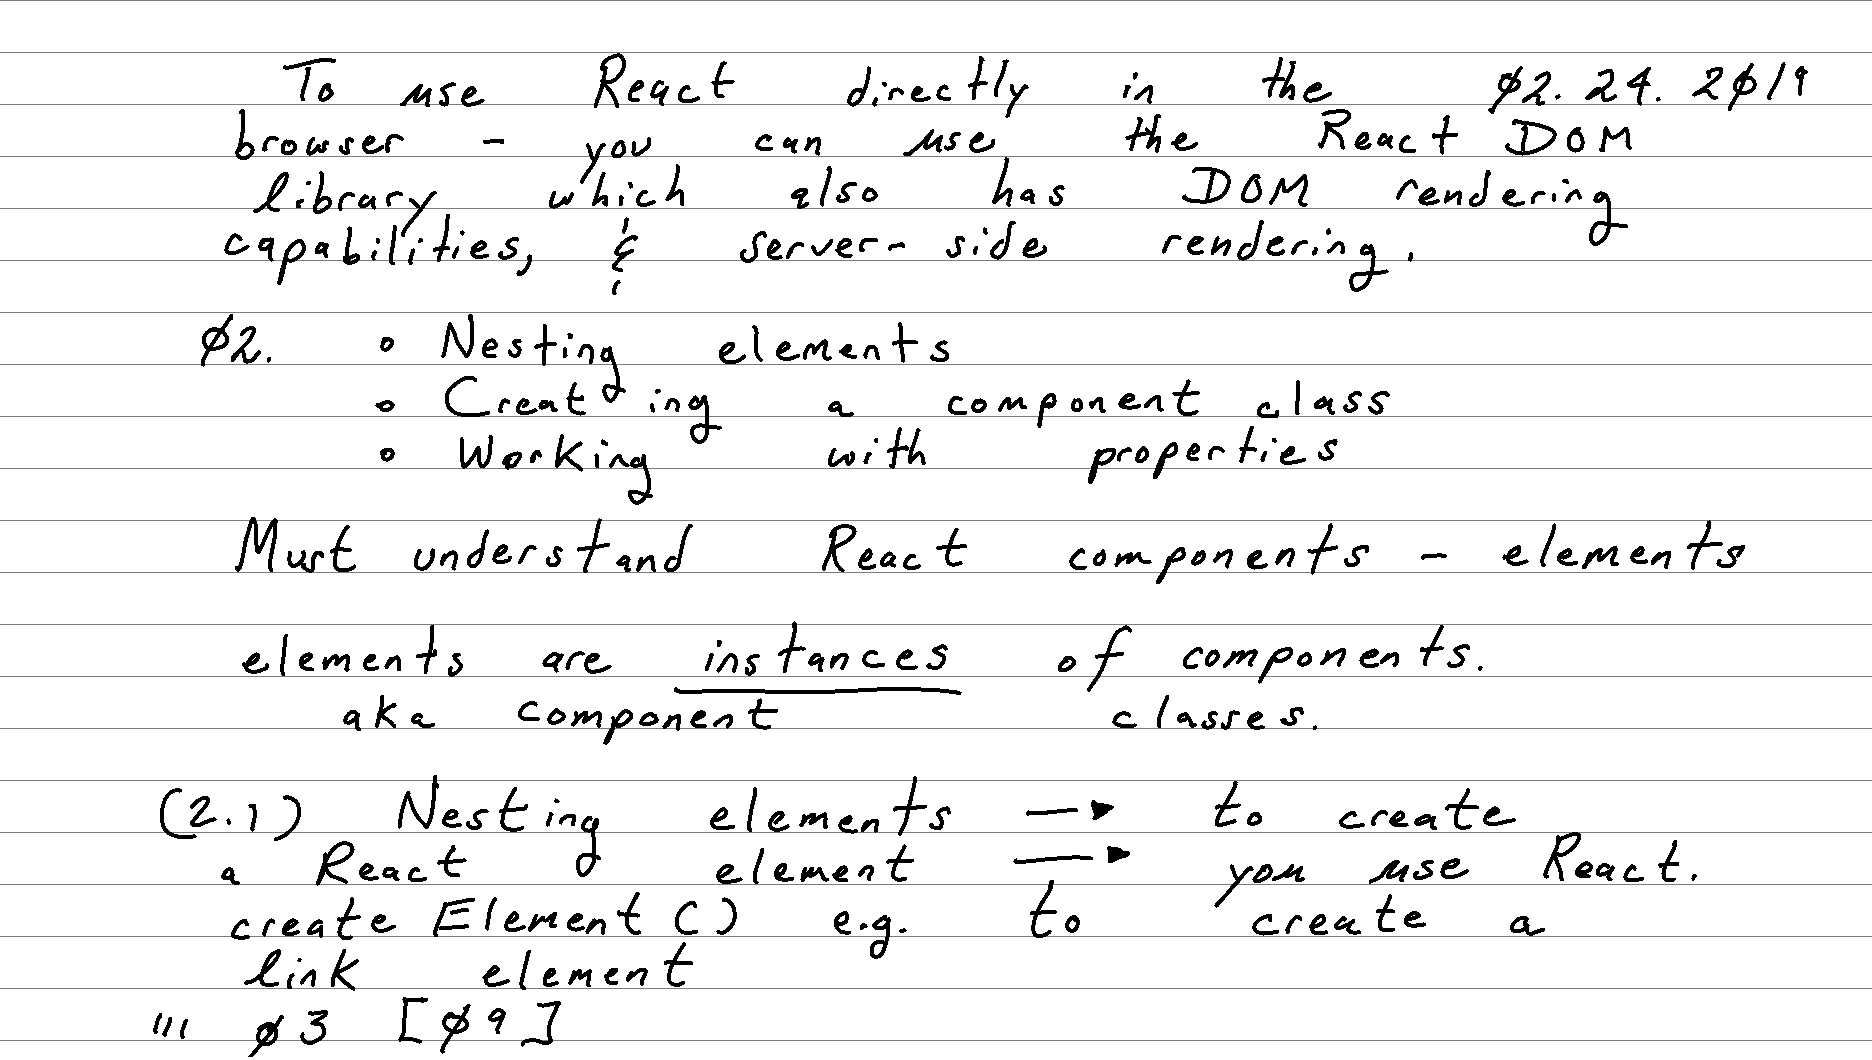 To use React directly in the ø2. 24. 2ø19
browser - you can use the React DOM
library which also has DOM rendering
capabilities, & server-side rendering.
ø2. ∘ Nesting elements
∘ Creating a component class
∘ Working with properties
Must understand React components - elements
elements are instances of components.
aka component classes.
(2.1) Nesting elements → to create
a React element → you use React.
createElement() e.g. to create a
link element
''' ø3 [ø9]